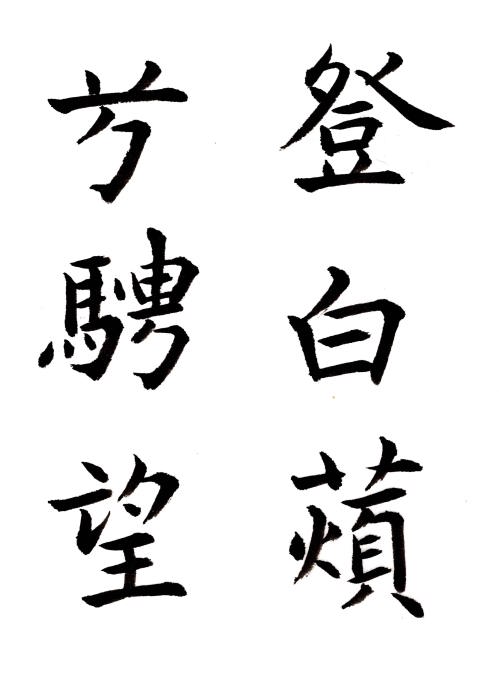 登白薠
兮騁望